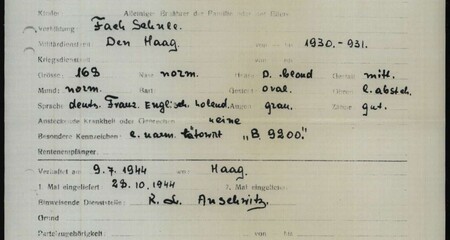 Vorbildung Fach Schule.
Militärdienstzeit Den Haag. von — bis 1930.-931.
Kriegsdienstzeit von — bis
Grösse: 168 Nase: norm. Haare: D. blond Gestalt: mitt.
Mund: norm. Bart: Gesicht: oval. Ohren: l. absteh.
Sprache: deuts. Franz. Englisch. Holend. Augen: grau. Zähne: gut.
Ansteckende Krankheit oder Gebrechen: keine
Besondere Kennzeichen: l. narm. tätowirt "B. 9200."
Rentenempfänger.
Verhaftet am: 9.7.1944 wo: Haag.
1. Mal eingeliefert 28.10.1944 2. Mal eingeliefert
Einweisende Dienststelle: K. L. Auschwitz.
Grund
Parteizugehörigkeit: von — bis